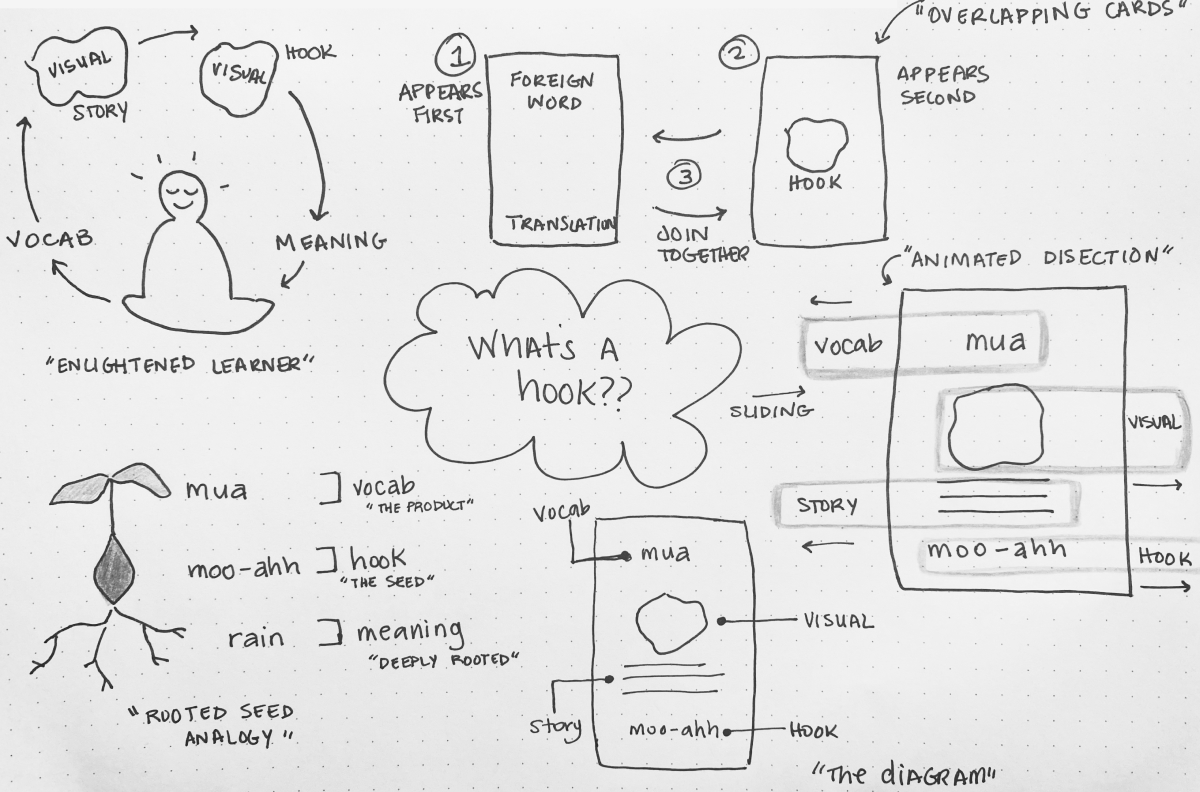 VISUAL
STORY
VISUAL
HOOK
VOCAB
MEANING
"ENLIGHTENED LEARNER"
1
APPEARS
FIRST
FOREIGN
WORD
TRANSLATION
2
"OVERLAPPING CARDS"
APPEARS
SECOND
HOOK
3
JOIN
TOGETHER
What's A
hook??
"ANIMATED DISECTION"
vocab mua
SLIDING
VISUAL
STORY
moo-ahh HOOK
mua ] vocab
"THE PRODUCT"
moo-ahh ] hook
"THE SEED"
rain ] meaning
"DEEPLY ROOTED"
"ROOTED SEED
ANALOGY"
Vocab
mua
VISUAL
Story
moo-ahh
HOOK
"The diAGRAM"